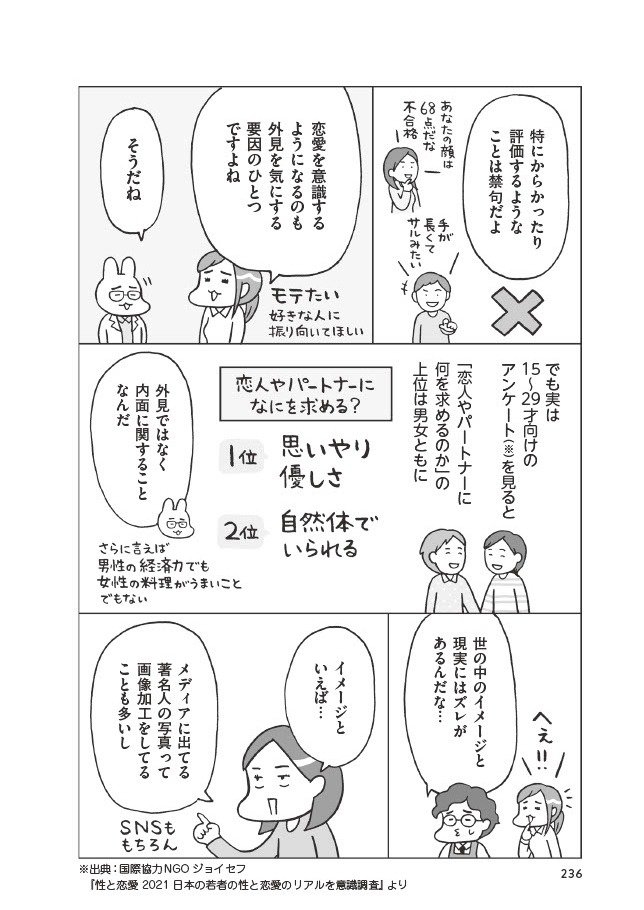 特にからかったり
評価するような
ことは禁句だよ
あなたの顔は
68点だな
不合格
手が
長くて
サルみたい
恋愛を意識する
ようになるのも
外見を気にする
要因のひとつ
ですよね
モテたい
好きな人に
振り向いてほしい
そうだね
でも実は
15〜29才向けの
アンケート(※)を見ると
「恋人やパートナーに
何を求めるのか」の
上位は男女ともに
恋人やパートナーに
なにを求める?
1位 思いやり
優しさ
2位 自然体で
いられる
外見ではなく
内面に関すること
なんだ
さらに言えば
男性の経済力でも
女性の料理がうまいこと
でもない
世の中のイメージと
現実にはズレが
あるんだな…
へぇ!!
イメージと
いえば…
メディアに出てる
著名人の写真って
画像加工をしてる
ことも多いし
SNSも
もちろん
※出典:国際協力NGO ジョイセフ
『性と恋愛 2021 日本の若者の性と恋愛のリアルを意識調査』より
236